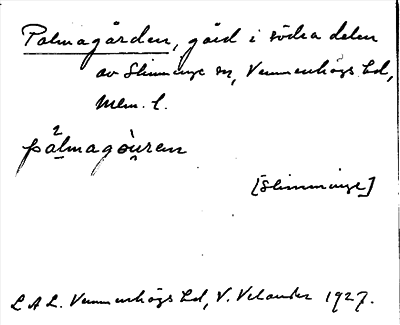 Palmagården, gård i södra delen
av Slimminge sn, Vemmenhögs hd,
Mlm. l.
pa̤lmagòu̯ren
[Slimminge]
L A L. Vemmenhögs hd, V. Velander 1927.